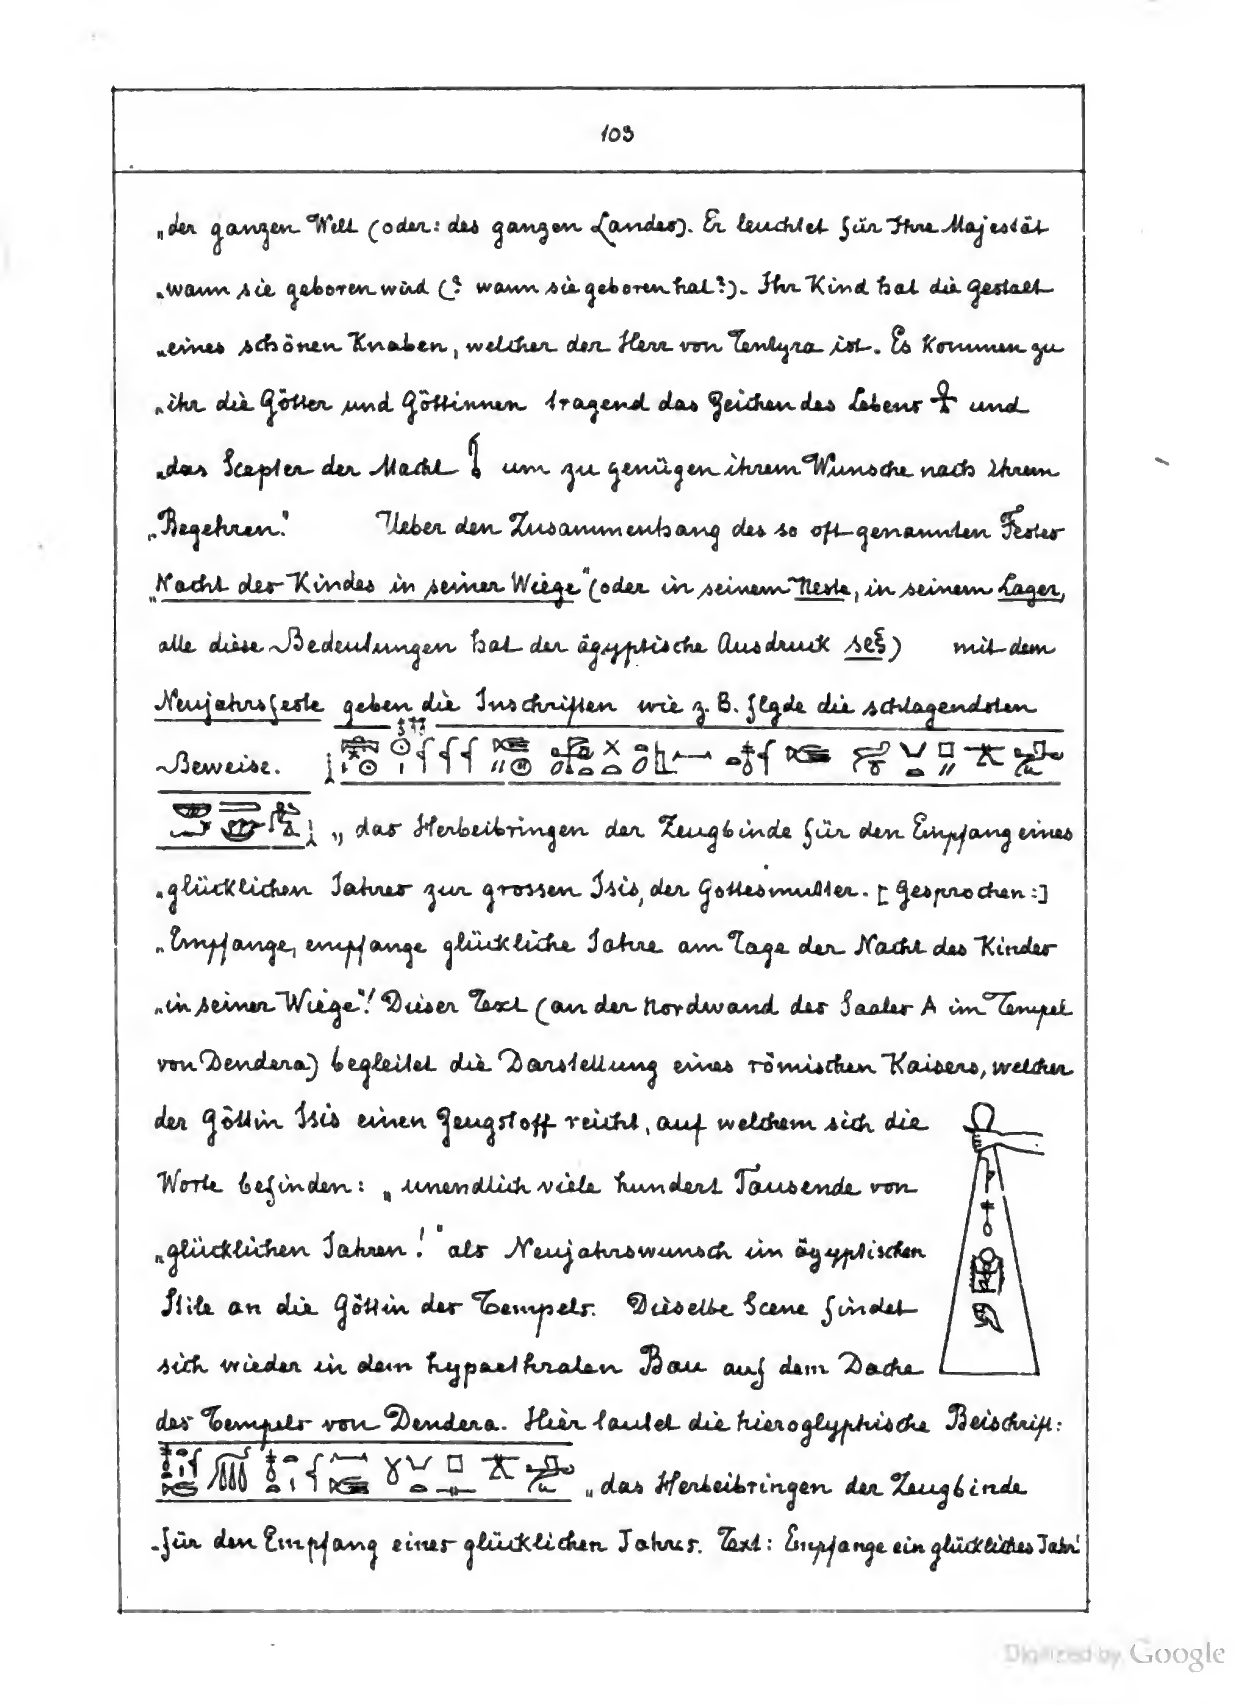 103
„der ganzen Welt (oder: des ganzen Landes). Er leuchtet für Ihre Majestät
„wann sie geboren wird (? wann sie geboren hat?). Ihr Kind hat die Gestalt
„eines schönen Knaben, welcher der Herr von Tentyra ist. Es kommen zu
„ihr die Götter und Göttinnen tragend das Zeichen des Lebens 𓋹 und
„das Scepter der Macht um zu genügen ihrem Wunsche nach ihrem
„Begehren." Ueber den Zusammenhang des so oft genannten Festes
„Nacht des Kindes in seiner Wiege" (oder in seinem Neste, in seinem Lager,
alle diese Bedeutungen hat der ägyptische Ausdruck seš) mit dem
Neujahrsfeste geben die Inschriften wie z. B. flgde die schlagendsten
Beweise.
„das Herbeibringen der Zeugbinde für den Empfang eines
„glücklichen Jahres zur grossen Isis, der Gottesmutter. [Gesprochen:]
„Empfange, empfange glückliche Jahre am Tage der Nacht des Kindes
„in seiner Wiege"! Dieser Text (an der Nordwand des Saales A im Tempel
von Dendera) begleitet die Darstellung eines römischen Kaisers, welcher
der Göttin Isis einen Zeugstoff reicht, auf welchem sich die
Worte befinden: „unendlich viele hundert Tausende von
„glücklichen Jahren!" als Neujahrswunsch im ägyptischen
Stile an die Göttin des Tempels. Dieselbe Scene findet
sich wieder in dem hypaethralen Bau auf dem Dache
des Tempels von Dendera. Hier lautet die hieroglyphische Beischrift:
„das Herbeibringen der Zeugbinde
„für den Empfang eines glücklichen Jahres. Text: Empfange ein glückliches Jahr!
Digitized by Google